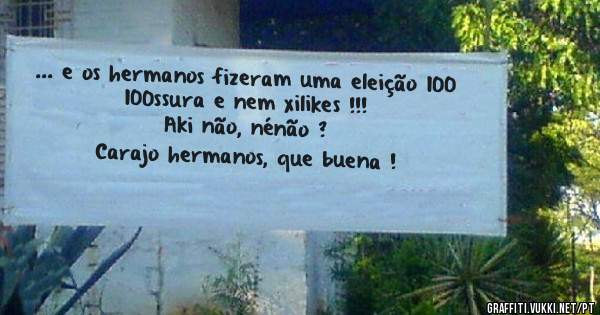 ... e os hermanos fizeram uma eleição 100
100ssura e nem xilikes !!!
Aki não, nénão ?
Carajo hermanos, que buena !
GRAFFITI.VUKKI.NET/PT